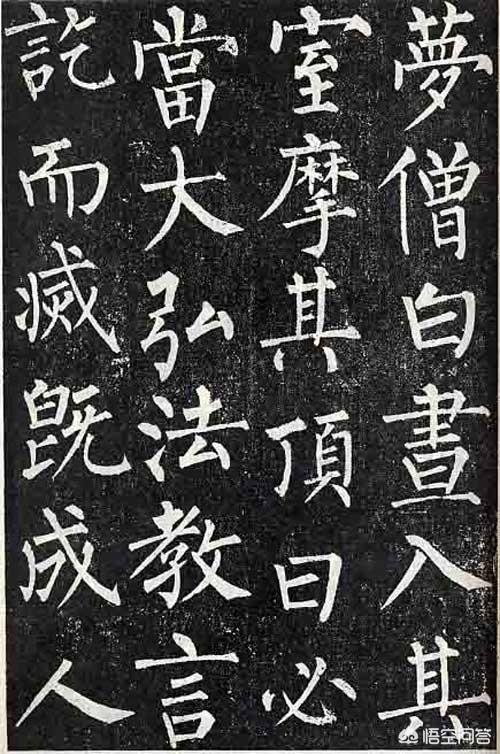 夢僧白晝入其
室摩其頂曰必
當大弘法教言
訖而滅既成人
悟空问答